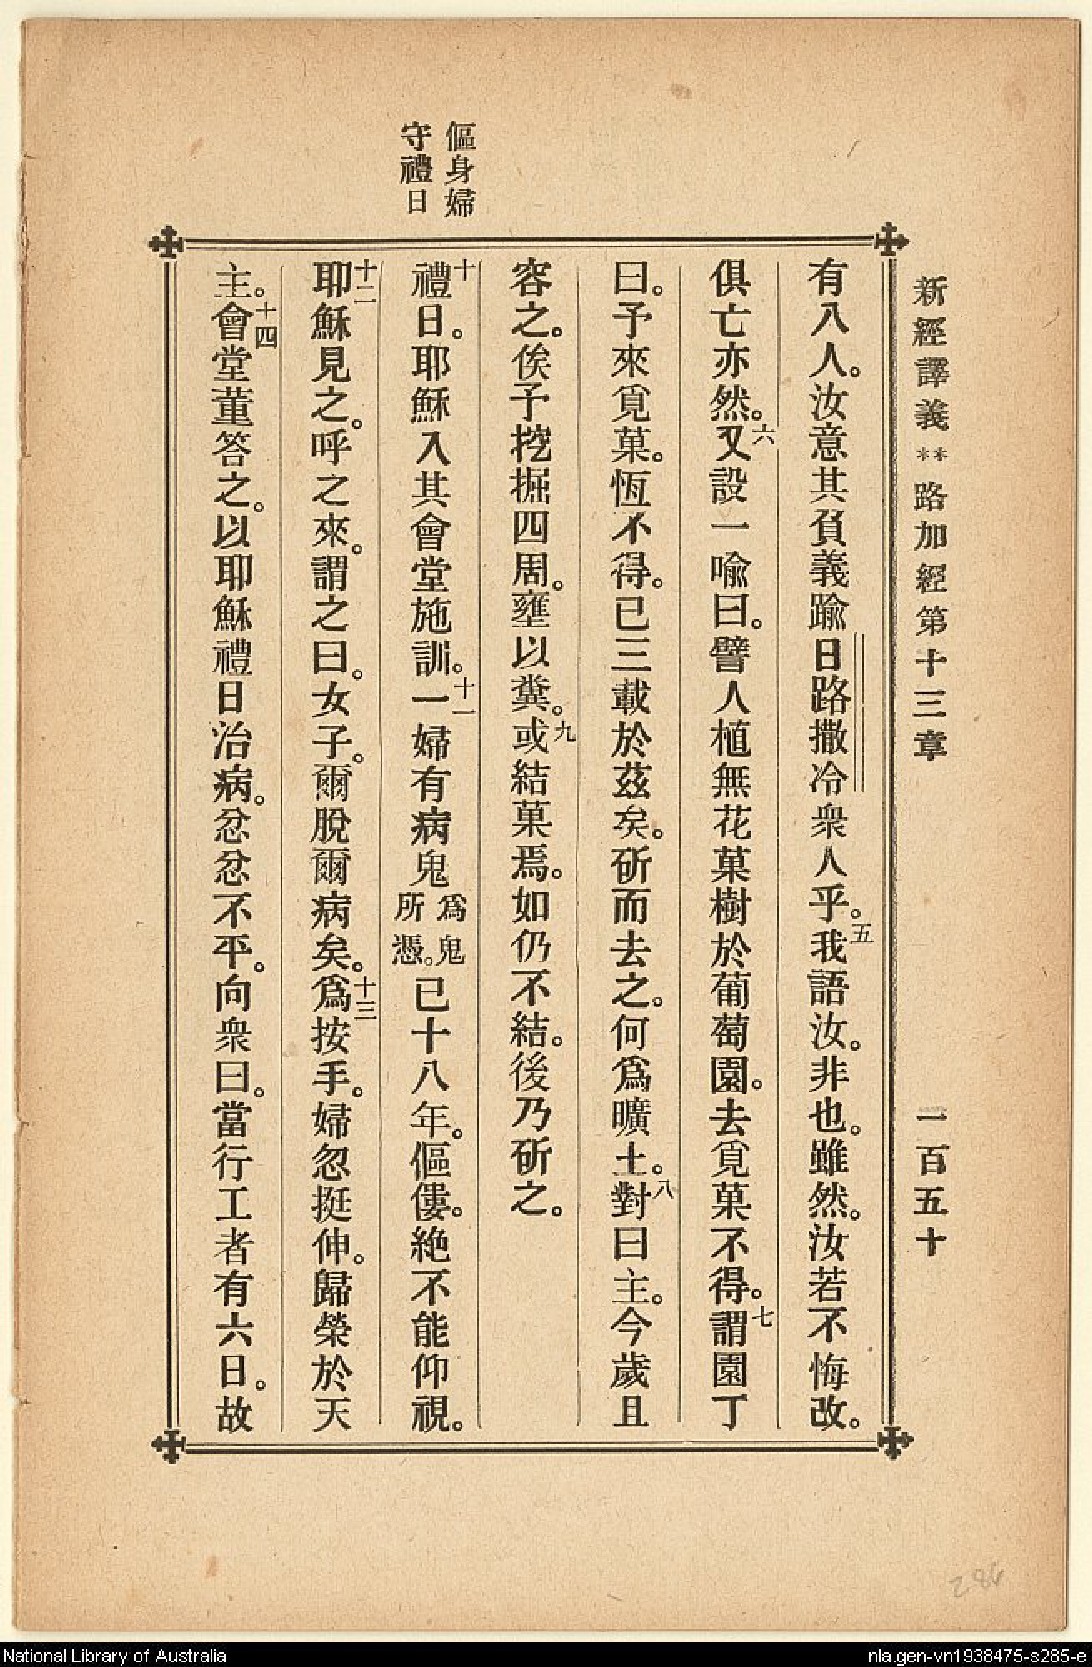 新經譯義**路加經第十三章 一百五十
有八人。汝意其負義踰日路撒冷衆人乎。五我語汝。非也。雖然。汝若不悔改。
俱亡亦然。六又設一喩曰。譬人植無花菓樹於葡萄園。去覓菓不得。七謂園丁
曰。予來覓菓。恆不得。已三載於茲矣。斫而去之。何爲曠土。八對曰主。今歲且
容之。俟予挖掘四周。壅以糞。九或結菓焉。如仍不結。後乃斫之。
傴身婦
守禮日
十禮日。耶穌入其會堂施訓。十一一婦有病鬼爲鬼所憑。已十八年。傴僂。絶不能仰視。
十二耶穌見之。呼之來。謂之曰。女子。爾脫爾病矣。十三爲按手。婦忽挺伸。歸榮於天
主。十四會堂董答之。以耶穌禮日治病。忿忿不平。向衆曰。當行工者有六日。故
286
National Library of Australia
nla.gen-vn1938475-s285-e